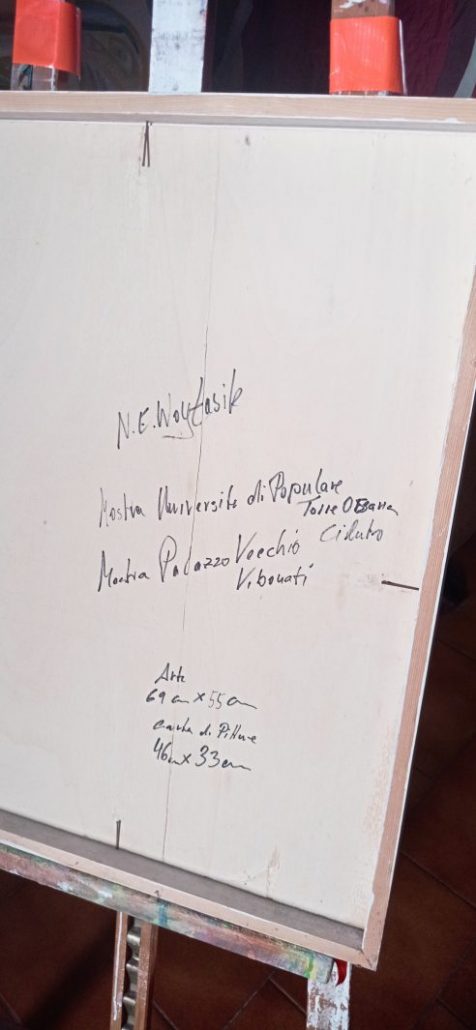 N.E. Woytasik
Mostra Università di Popolare
Torre Orsaia
Mostra Palazzo Vecchio
Vibonati
Arte
69 cm x 55 cm
carta di Pitture
46cm x 33cm